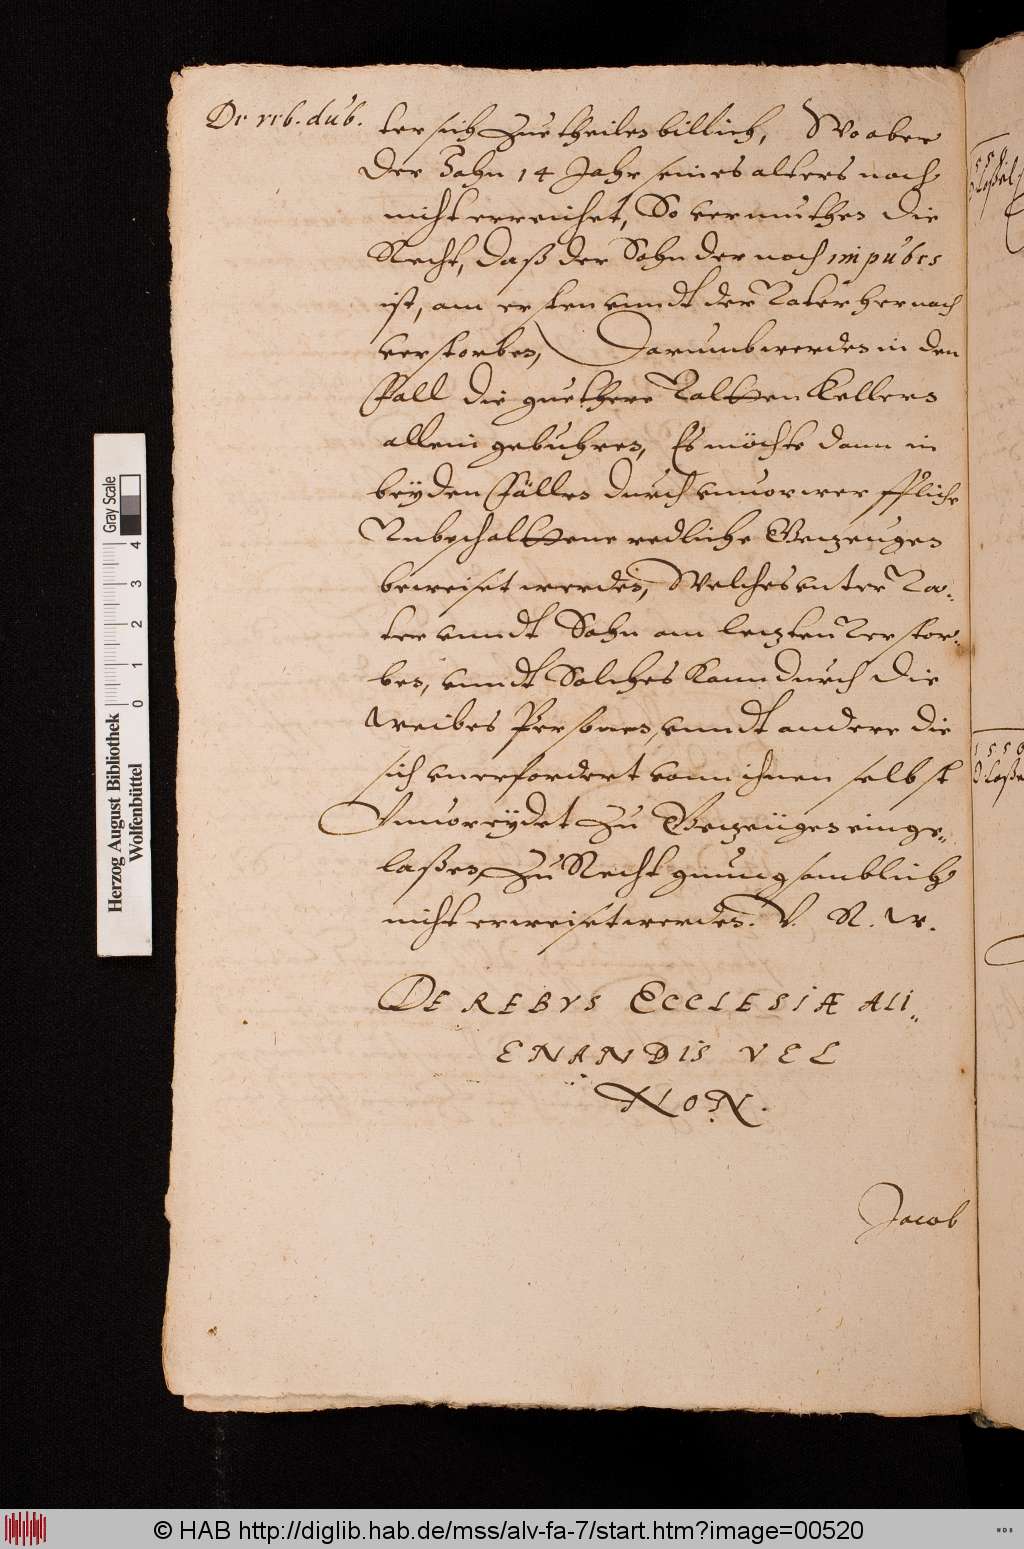 De reb. dub.
ter sich Zue theilen billich, Wo aber
Der Sohn 14 Jahr seines alters noch
nicht erreichet, So vermuthen die
Recht, daß der Sohn der noch impubes
ist, am ersten vnndt der Vater hernach
verstorben, Darumb werden in den
Fall die guethere Valtten Kellers
allein gebuhren, Es möchte dann in
beyden Fällen durch vnuorwerffliche
Vnbschaltene redliche Gezeugen
beweiset werden, Welches vnter Va-
ter vnndt Sohn am letzten Verstor-
ben, vnndt Solches Kann durch die
weibes Persones, vnndt andere die
sich vnerfordert vonn ihnen selbst
Vnuoreydet Zu Gezeügen einge-
laßen, Zu Recht gnungsamblich
nicht erweiset werden. V. R. W.
DE REBVS ECCLESIÆ ALI-
ENANDIS VEL
NON.
Jacob
Herzog August Bibliothek
Wolfenbüttel
Gray Scale
0 1 2 3 4
© HAB http://diglib.hab.de/mss/alv-fa-7/start.htm?image=00520